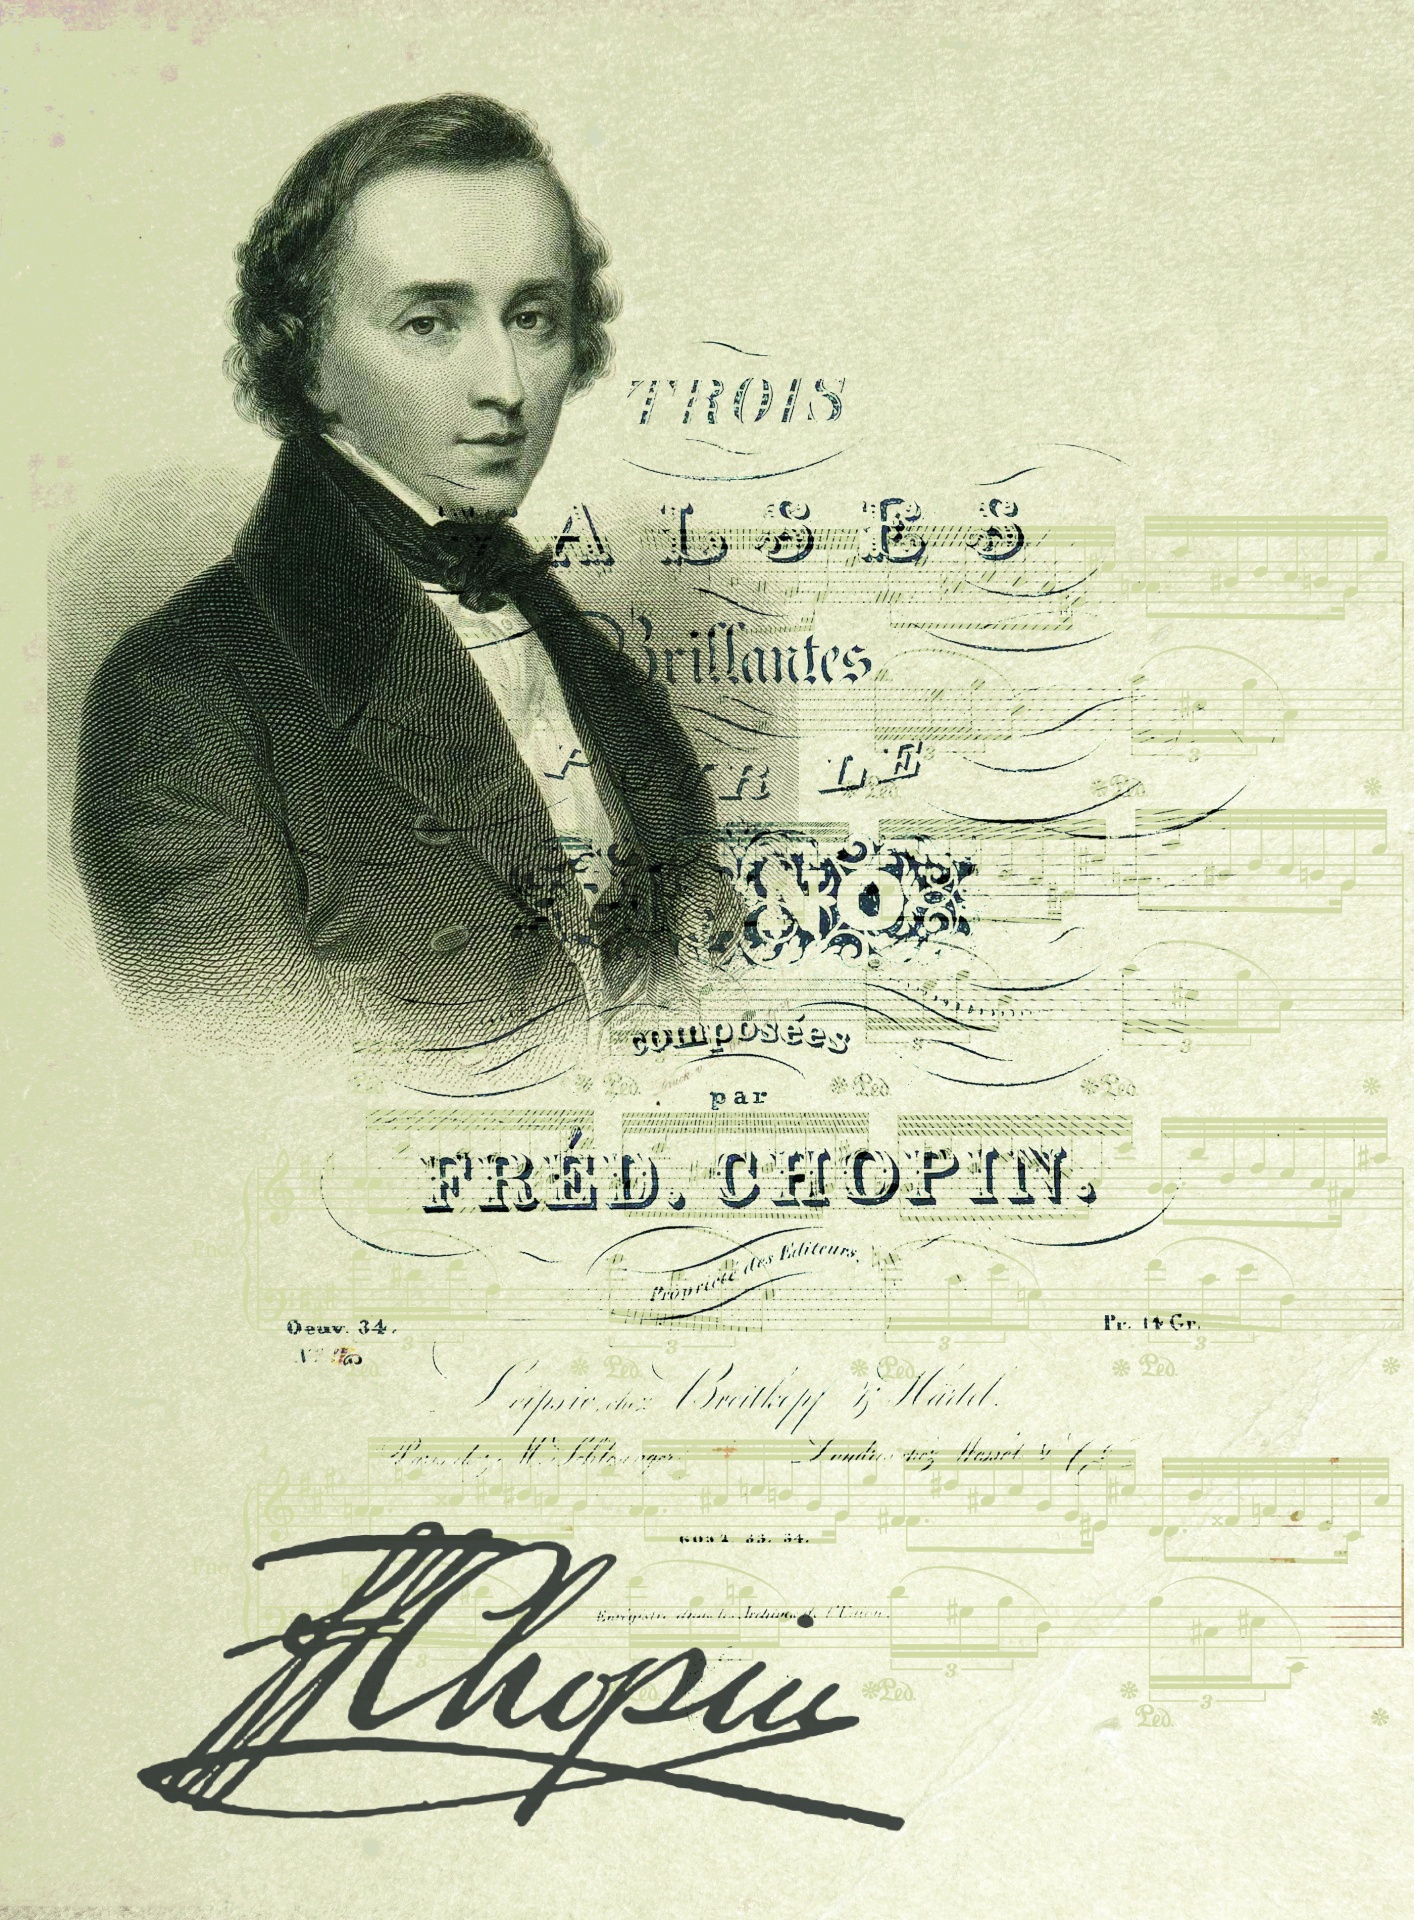 TROIS
VALSES
Brillantes
POUR LE
PIANO
composées
par
FRÉD. CHOPIN.
Propriété des Editeurs.
Oeuv. 34. Pr. 14 Gr.
Leipsic, chez Breitkopf & Härtel.
Paris chez M. Schlesinger. Londres chez Wessel & C.
Enregistré dans les Archives de l'Union.
Ped. Ped.
Ped. Ped. Ped.
Ped. Ped. Ped. Ped.
Ped. Ped.
Ped.
3 3
3 3
3 3 3
3 3 3
FChopin